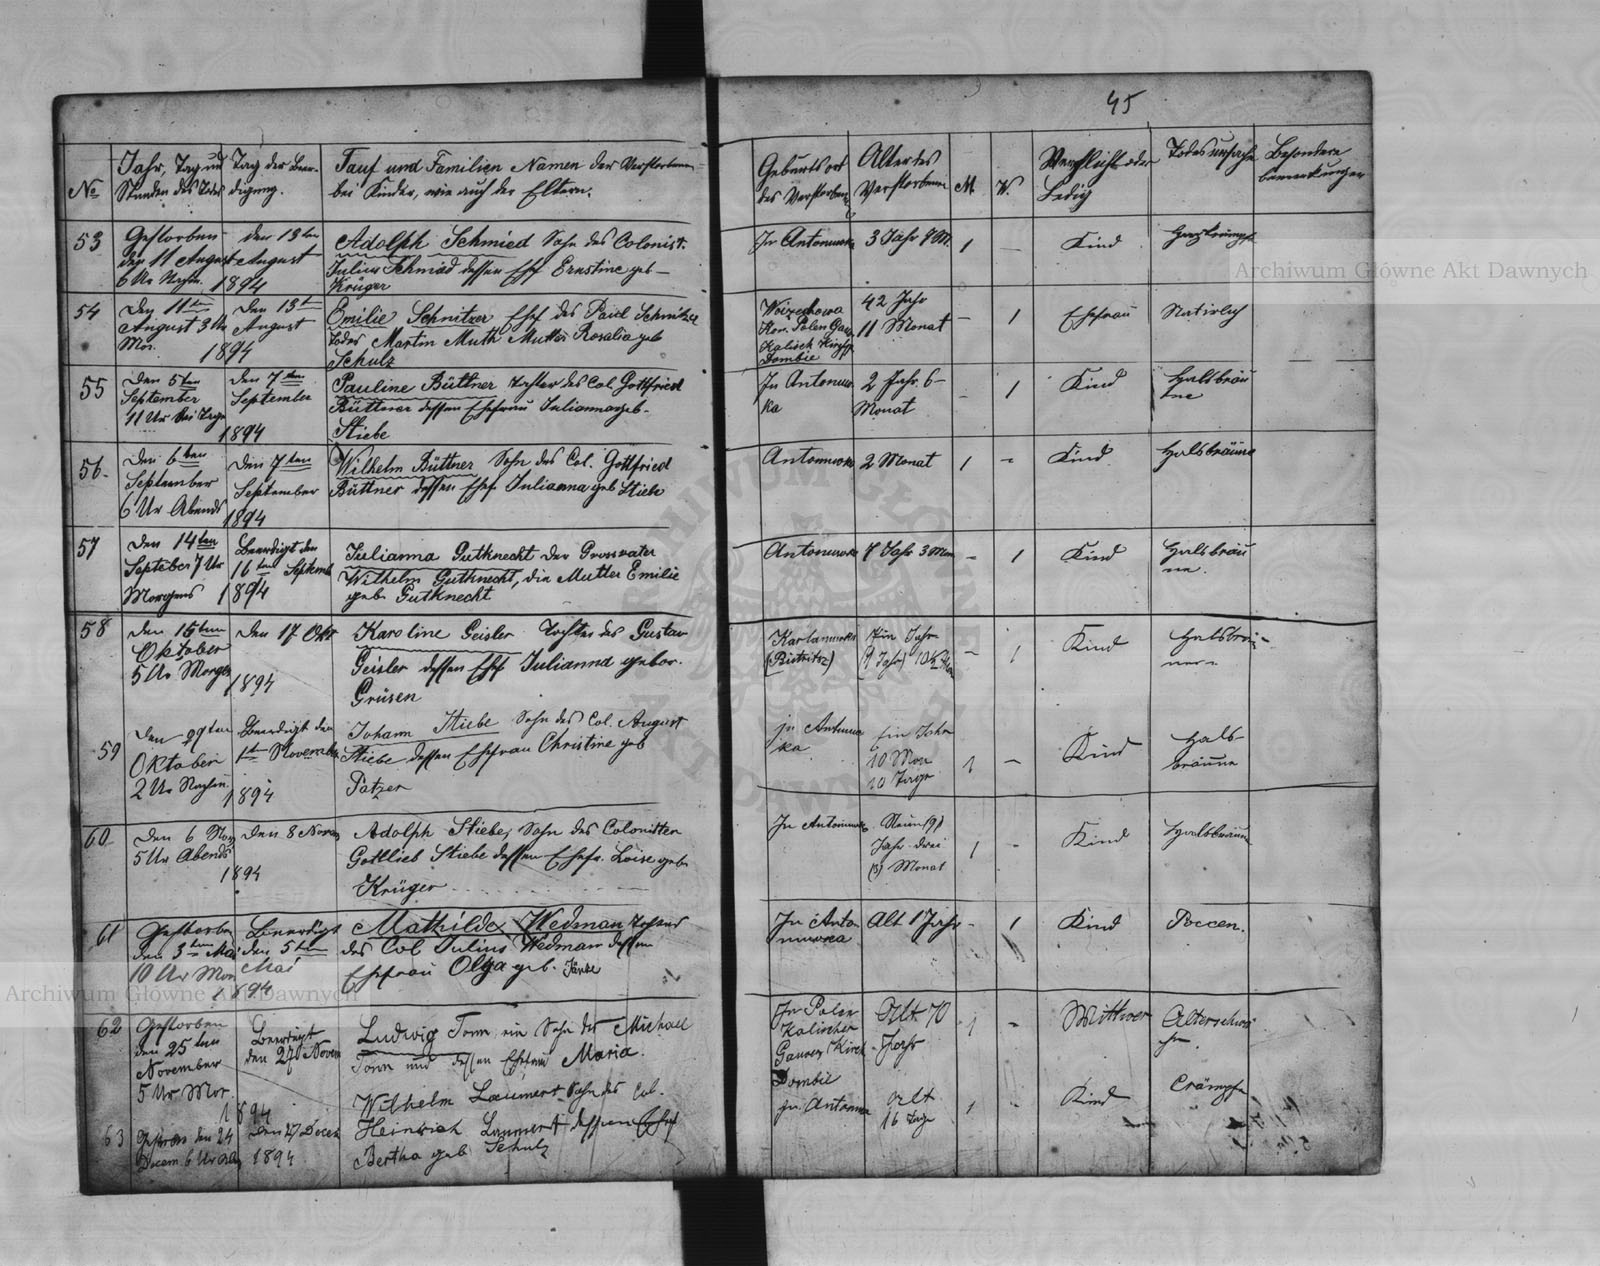 45
No
Jahr, Tag und
Stunden des Todes
Tag der Beer-
digung.
Tauf und Familien Namen der Verstorbenen
bei Kinder, wie auch der Eltern.
Geburtsort
des Verstorben
Alter des
Verstorbenen
M.
W.
Ledig
Todesursache
Besondere
bemerkungen
53
Gestorben
den 11 August
6 Ur Nachm.
den 13ten
August
1894
Adolph Schmied Sohn des Colonist.
Julius Schmied dessen Ehef Ernestine geb-
Krüger
In Antonuwka
3 Jahr
1
-
Kind
54
Den 11ten
August 3 Ur
Mor.
Den 13t
August
1894
Emilie Schnitzer Ehef des Paul Schnitzer
Martin Muth Mutter Rosalia geb
Schulz
Kon. Polen Gou
Kalisch Kirchsp
Dombie
42 Jahr
11 Monat
-
1
Ehefrau
Natirlich
55
Den 5ten
September
11 Ur
Den 7ten
September
1894
Pauline Büttner Tochter des Col. Gottfried
Büttner dessen Ehefrau Julianna geb-
Stiebe
In Antonuw
ka
2 Jahr. 6-
Monat
-
1
Kind
Halsbräu
ne
56.
Den 6ten
September
6 Ur Abends
Den 7ten
September
1894
Wilhelm Büttner Sohn des Col. Gottfried
Büttner dessen Ehef. Julianna geb Stiebe
Antonuwka
2 Monat
1
-
Kind.
Halsbräune
57
Den 14ten
Septeber 7 Ur
Morgens
Beerdigt den
16ten Septemb
1894
Julianna Gutknecht der Grosvater
Wilhelm Gutknecht, die Mutter Emilie
geb. Gutknecht
Antonuwka
Jahr 3 Mon
-
1
Kind
Halsbräu
ne.
58
Den 15ten
Oktober
5 Ur Morgen
Den 17 Okt
1894
Karoline Geisler Tochter des Gustav
Geisler dessen Ehef Julianna gebor.
Grüsen
Jahr
-
1
Kind
59
Den 29ten
Oktober
2 Ur Nachm.
Beerdigt den
1ten November
1894
Johann Stiebe Sohn des Col. August
Stiebe dessen Ehefrau Christine geb
Patzer
in Antonuw
ka
Ein Jahr
10 Mon
10 Tage
1
-
Kind
Hals-
bräune
60
Den 6 Nov
5 Ur Abends
Den 8 Novem
1894
Adolph Stiebe, Sohn des Colonisten
Gottlieb Stiebe dessen Ehefr. Loise geb.
Krüger
In Antonuwka
Neun (9)
Jahr drei
(3) Monat
1
-
Kind
Halsbräune
61
Gestorben
den 3ten Mai
10 Ur Mor
Beerdigt
den 5ten
Mai
1894
Mathilde Wedman Tochter
des Col Julius Wedman dessen
Ehefrau Olga geb. Jänke
In Anto-
nuwka
Alt 1 Jahr
-
1
Kind
Poccen.
62
Gestorben
den 25ten
November
5 Ur Mor.
Beerdigt
den 27 Novem
1894
Ludwig Tonn ein Sohn des Michael
Tonn und dessen Ehefrau Maria.
In Polen
Kalischer
Gouver Kirch
Dombie
Alt 70
Jahr
1
-
Wittwer
Alterschwä
che
63
Gestorben den 24
Decem 6 Ur
Den 27 Decem
1894
Wilhelm Laumert Sohn des Col.
Heinrich Laumert dessen Ehef
Bertha geb Schulz
in Antonuw
alt
16 Tage
1
-
Kind
Crämpfe
Archiwum Główne Akt Dawnych
Archiwum Główne Akt Dawnych